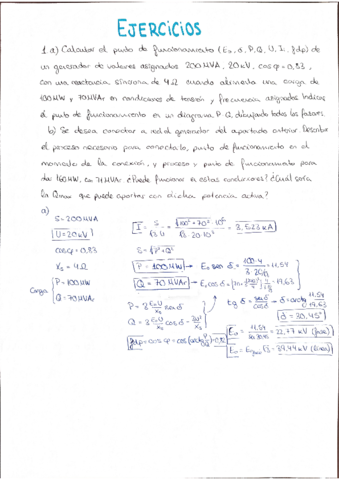 EJERCICIOS
1. a) Calcular el punto de funcionamiento (E₀, δ, P, Q, U, I, fdp) de
un generador de valores asignados 200 MVA, 20 kV, cos φ = 0,83,
con una reactancia síncrona de 4 Ω cuando alimenta una carga de
100 MW y 70 MVAr en condiciones de tensión y frecuencia asignadas. Indicar
el punto de funcionamiento en un diagrama P, Q, dibujando todos los fasores.
b) Se desea conectar a red el generador del apartado anterior. Describir
el proceso necesario para conectarlo, punto de funcionamiento en el
momento de la conexión, y proceso y punto de funcionamiento para
dar 160 MW, en MVA. ¿Puede funcionar en estas condiciones? ¿Cuál sería
la Qmax que puede aportar con dicha potencia activa?
a)
S = 200 MVA
U = 20 kV
cos φ = 0,83
Xs = 4 Ω
Carga { P = 100 MW
Q = 70 MVAr
I = S / √3 U = √(100² + 70²) · 10⁶ / √3 · 20 · 10³ = 3,523 kA
S = √(P² + Q²)
P = 100 MW → E₀ sen δ = 100 · 4 / 3 · 20/√3 = 11,54
Q = 70 MVAr → E₀ cos δ = 19,63
P = 3 E₀U / Xs sen δ
Q = 3 E₀U / Xs cos δ - 3U² / Xs
tg δ = sen δ / cos δ → δ = arctg 11,54 / 19,63
δ = 30,45°
fdp = cos φ = cos (arctg Q/P) = 0,82
E₀ = 11,54 / sen 30,45 = 22,77 kV (fase)
E₀ = E₀fase √3 = 39,44 kV (línea)